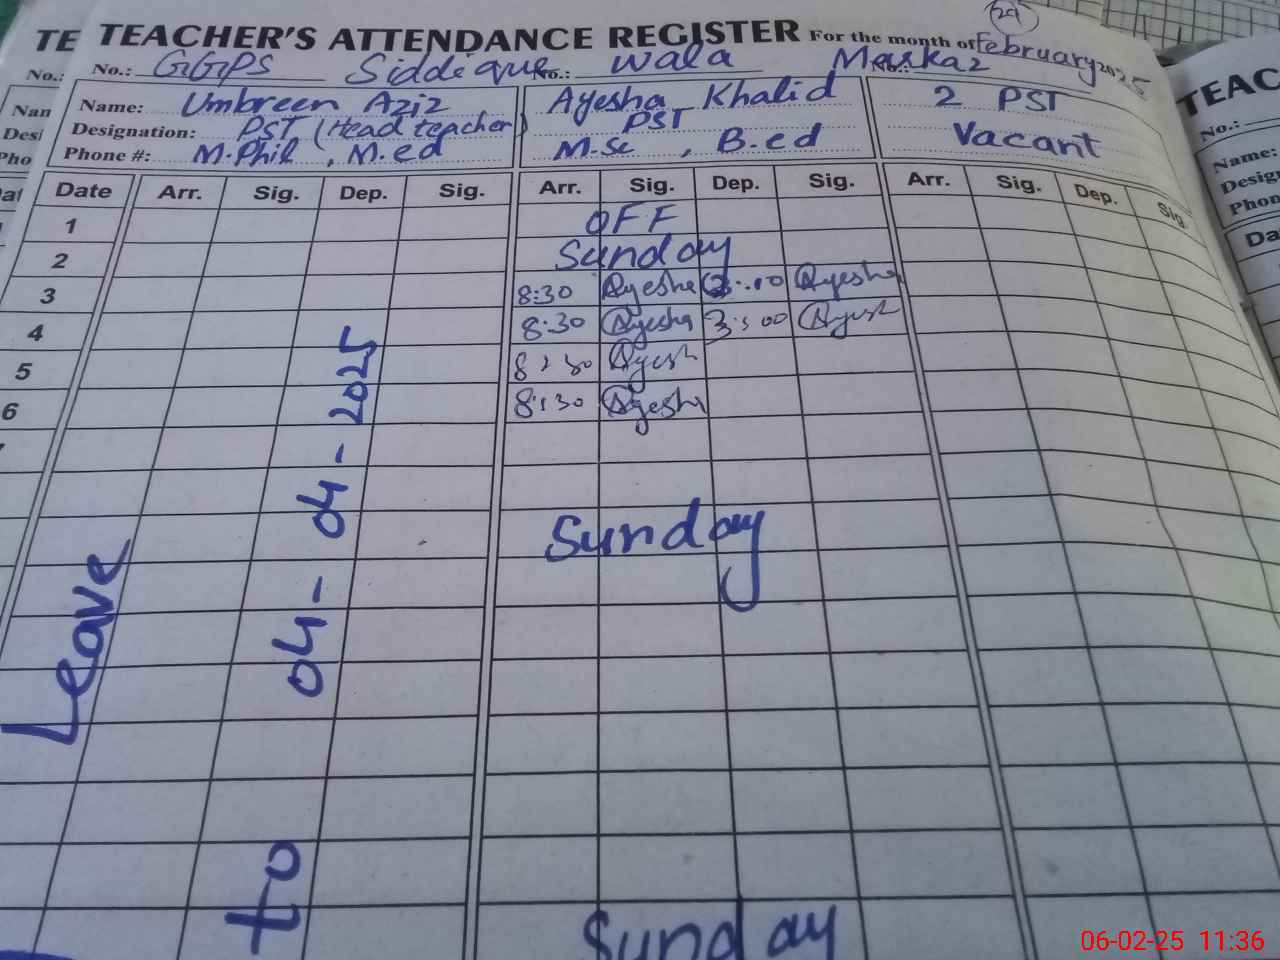 TE
TEACHER'S ATTENDANCE REGISTER For the month of February 2025
29
No.: No.: GGPS Siddique No.: Wala No.: Markaz
Nam Name: Umbreen Aziz Ayesha Khalid 2 PST
Desi Designation: PST (Head teacher) PST Vacant
Pho Phone #: M.Phil , M.ed M.Sc , B.ed
Date Arr. Sig. Dep. Sig. Arr. Sig. Dep. Sig. Arr. Sig. Dep. Sig
1 OFF
2 Sunday
3 8:30 Ayesha 3:00 Ayesha
4 8:30 Ayesha 3:00 Ayesh
5 8:30 Ayesh
6 8:30 Ayesha
Sunday
Sunday
Leave
to 04-04-2025
TEAC
No.:
Name:
Design
Phon
Da
06-02-25 11:36